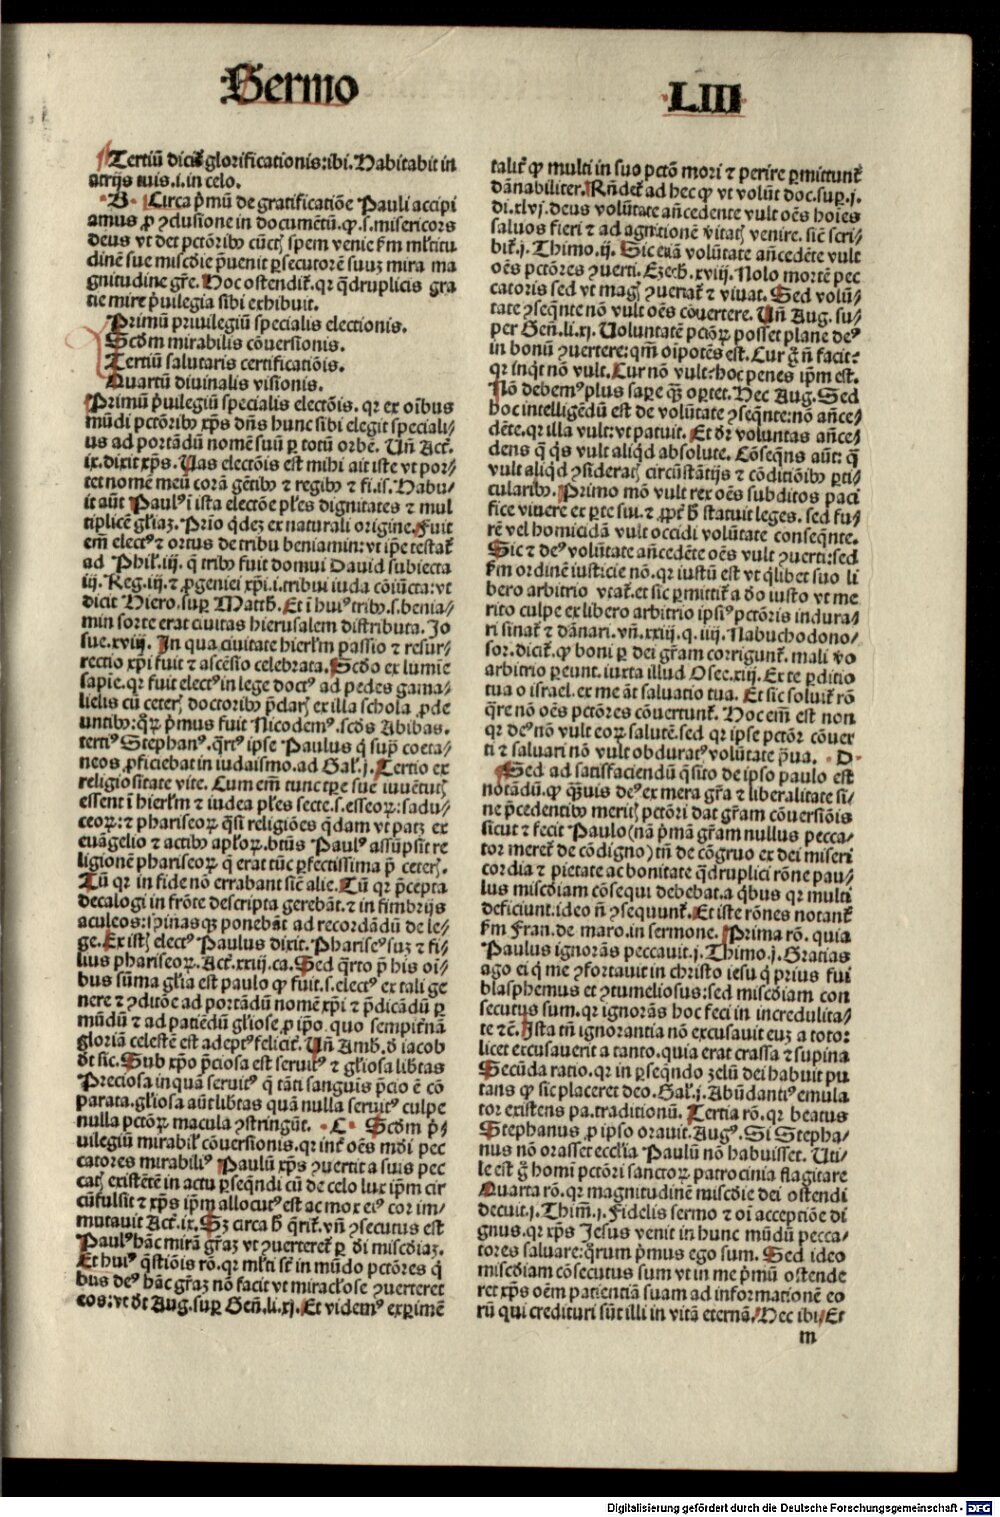 Sermo LIII
Tertiū dicit᷑ glorificationis:ibi. Habitabit in
atrijs tuis.i. in celo.
·B· Circa p̄mū de gratificatiōe Pauli accipi
amus ꝓ ꝯclusione in documētū.ꝙ.s.misericors
deus vt det pctōribꝰ cūctꝭ spem venie ẜm ml̓titu
dinē sue miscd̓ie p̄uenit ꝑsecutorē suuꝫ mira ma
gnitudine gr̄e. Hoc ostendit᷑. qr q̄druplicis gra
tie mire p̄uilegia sibi exhibuit.
Primū priuilegiū specialis electionis.
Scd̓m mirabilis cōuersionis.
Tertiū salutaris certificatiōis.
Quartū diuinalis visionis.
Primū p̄uilegiū specialis electōis. qr ex oībus
mūdi pctōribꝰ xp̄s dn̄s hunc sibi elegit speciali/
us ad portādū nomē suū ꝑ totū orbē. Un̄ Act᷑.
ix.dixit xp̄s. Uas electōis est mihi ait iste vt por/
tet nomē meū corā gētibꝰ ⁊ regibꝰ ⁊ fi.is. Habu/
it aūt Paulꝰ ī ista electōe pl̓es dignitates ⁊ mul
tiplicē gl̓iaꝫ. Prīo q̇deꝫ ex naturali origine. Fuit
em̄ electꝰ ⁊ ortus de tribu beniamin: vt ip̄e testat᷑
ad Phil̓.iij. q̄ tribꝰ fuit domui Dauid subiecta
iij. Reg.iij.⁊ ꝓgeniei xp̄i.i.tribui iuda cōiūcta:vt
dicit Hiero.suꝑ Matth̓. Et ī huiꝰ tribꝰ.s.benia/
min sorte erat ciuitas hierusalem distributa. Jo
sue.xviij. In qua ciuitate hierl̓m passio ⁊ resur/
rectio xp̄i fuit ⁊ ascēsio celebrata. Scd̓o ex lumīe
sapie. qr fuit electꝰ in lege doctꝰ ad pedes gama/
lielis cū ceterꝭ doctoribꝰ p̄clarꝭ ex illa schola ꝓde
untibꝰ: qr̄ꝝ p̄mus fuit Nicodemꝰ. scd̓s Abibas.
tertiꝰ Stephanꝰ. q̄rtꝰ ipse Paulus q̇ sup̄ coeta/
neos ꝓficiebat in iudaismo. ad Gal̓.j. Tertio ex
religiositate vite. Cum em̄ tunc tꝑe sue iuuētutꝭ
essent ī hierl̓m ⁊ iudea pl̓es secte.s.esseoꝝ: sadu/
ceoꝝ: ⁊ phariseoꝝ q̄si religiōes q̄dam vt patꝫ ex
euāgelio ⁊ actibꝰ apl̓oꝝ. btūs Paulꝰ assūpsit re
ligionē phariseoꝝ q̄ erat tūc ꝑfectissima p̄ ceterꝭ.
Tū qr in fide nō errabant sic̄ alie. Tū qr p̄cepta
decalogi in frōte descripta gerebāt.⁊ in fimbrijs
aculeos: spinasqꝫ ponebāt ad recordādū de le/
ge. Ex istꝭ electꝰ Paulus dixit. Phariseꝰ suꝫ ⁊ fi/
lius phariseoꝝ. Act᷑.xxiij.ca. Sed q̄rto p̄ his oī/
bus sūma gl̓ia est paulo ꝙ fuit.s.electꝰ ex tali ge
nere ⁊ ꝯditōe ad portādū nomē xp̄i ⁊ p̄dicādū ꝑ
mūdū ⁊ ad patiēdū gl̓iose ꝓ ip̄o. quo sempit̓nā
gloriā celestē est adeptꝰ felicit᷑. Un̄ Amb̓. d̓ iacob
dt̄ sic. Sub xp̄o p̄ciosa est seruitꝰ ⁊ gl̓iosa lib̓tas
Preciosa inquā seruitꝰ q̄ tāti sanguis p̄cio ē cō
parata. gl̓iosa aūt lib̓tas quā nulla seruitꝰ culpe
nulla pctōꝝ macula ꝯstringūt. ·C· Scd̓m p̄/
uilegiū mirabil̓ cōuersionis. qr int᷑ oēs mōi pec
catores mirabiliꝰ Paulū xp̄s ꝯuertit a suis pec
catꝭ existētē in actu ꝑseq̄ndi cū de celo lux ip̄m cir
cūfulsit ⁊ xp̄s ip̄m allocutꝰ est ac mox eiꝰ cor im/
mutauit Act᷑.ix. Sꝫ circa h̓ q̄rit᷑. vn̄ ꝯsecutus est
Paulꝰ hāc mirā gr̄aꝫ vt ꝯuerteret᷑ ꝑ d̓i miscd̓iaꝫ.
Et huiꝰ q̄stiōis rō. qr ml̓ti st̄ in mūdo pctōres q̇
bus deꝰ hāc gr̄aꝫ nō facit vt miracl̓ose ꝯuerteret
eos: vt dt̄ Aug. suꝑ Gen̄.li.xj. Et videmꝰ exꝑimē
talit᷑ ꝙ multi in suo pctō mori ⁊ perire ꝑmittunt᷑
dānabiliter. Rn̄det᷑ ad hec ꝙ vt volūt doc.suꝑ.j.
di.xlvj. deus volūtate an̄cedente vult oēs hoīes
saluos fieri ⁊ ad agnitionē vitatꝭ venire. sic̄ scri/
bit᷑.j. Thimo.ij. Sic etiā volūtate an̄cedēte vult
oēs pctōres ꝯuerti. Ezech̓.xviij. Nolo mortē pec
catoris sed vt magꝭ ꝯuertat᷑ ⁊ viuat. Sed volū/
tate ꝯseq̄nte nō vult oēs cōuertere. Un̄ Aug. su/
per Gen̄.li.xj. Voluntatē pctōꝝ posset plane deꝰ
in bonū ꝯuertere: qm̄ oīpotēs est. Cur g̊ n̄ facit:
qr inq̇t nō vult. Cur nō vult: hoc penes ip̄m est.
Nō debemꝰ plus sapere qꝫ oꝑtet. Hec Aug. Sed
hoc intelligēdū est de volūtate ꝯseq̄nte: nō an̄ce/
dēte. qr illa vult: vt patuit. Et dr̄ voluntas an̄ce/
dens q̄ q̇s vult aliq̇d absolute. Cōseq̄ns aūt: q̄
vult aliq̇d ꝯsideratꝭ circūstātijs ⁊ cōditiōibꝰ ꝑti/
cularibꝰ. Primo mō vult rex oēs subditos paci
fice viuere ex ꝑte sui.⁊ ꝓpt̓ h̓ statuit leges. sed fu/
rē vel homicidā vult occidi volūtate conseq̄nte.
Sic ⁊ deꝰ volūtate an̄cedēte oēs vult ꝯuerti: sed
ẜm ordinē iusticie nō. qr iustū est vt q̇libet suo li
bero arbitrio vtat᷑. et sic ꝑmittit᷑ a deo iusto vt me
rito culpe ex libero arbitrio ipsiꝰ pctōris indura/
ri sinat᷑ ⁊ dānari. vn̄.xxiij.q.iiij. Nabuchodono/
sor. dicit᷑. ꝙ boni ꝑ dei gr̄am corrigunt᷑. mali vo
arbitrio ꝑeunt. iuxta illud Osee.xiij. Ex te ꝑditio
tua o israel. ex me āt saluatio tua. Et sic soluit᷑ rō
q̄re nō oēs pctōres cōuertunt᷑. Hoc em̄ est non
qr deꝰ nō vult eoꝝ salutē. sed qr ipse pctōr cōuer
ti ⁊ saluari nō vult obduratꝰ volūtate p̄ua. ·D·
Sed ad satisfaciendū q̄sito de ipso paulo est
notādū. ꝙ qꝫuis deꝰ ex mera gr̄a ⁊ liberalitate si/
ne p̄cedentibꝰ meritꝭ pctōri dat gr̄am cōuersiōis
sicut ⁊ fecit Paulo (nā p̄mā gr̄am nullus pecca/
tor meret᷑ de cōdigno) tn̄ de cōgruo ex dei miseri
cordia ⁊ pietate ac bonitate q̄druplici rōne pau/
lus miscd̓iam cōsequi debebat. a q̇bus qr multi
deficiunt. ideo n̄ ꝯsequunt᷑. Et iste rōnes notant᷑
ẜm Fran. de maro. in sermone. Prima rō. quia
Paulus ignorās peccauit. j. Thimo.j. Gratias
ago ei q̇ me ꝯfortauit in christo iesu q̇ prius fui
blasphemus et ꝯtumeliosus: sed miscd̓iam con
secutus sum. qr ignorās hoc feci in incredulita/
te ⁊c̄. Ista tn̄ ignorantia nō excusauit euꝫ a toto:
licet excusauerit a tanto. quia erat crassa ⁊ supina
Secūda ratio. qr in ꝑseq̄ndo zelū dei habuit pu
tans ꝙ sic placeret deo. Gal̓.j. Abūdantiꝰ emula
tor existens pa. traditionū. Tertia rō. qr beatus
Stephanus ꝓ ipso orauit. Augꝰ. Si Stepha/
nus nō orasset eccl̓ia Paulū nō habuisset. Uti/
le est g̊ homī pctōri sanctoꝝ patrocinia flagitare
Quarta rō. qr magnitudinē miscd̓ie dei ostendi
decuit. j. Thim̄.j. Fidelis sermo ⁊ oī acceptiōe di
gnus. qr xp̄s Jesus venit in hunc mūdū pecca/
tores saluare: q̄rum p̄mus ego sum. Sed ideo
miscd̓iam cōsecutus sum vt in me p̄mū ostende
ret xp̄s oēm patientiā suam ad informationē eo
rū qui credituri sūt illi in vitā eternā. Hec ibi. Et
m
Digitalisierung gefördert durch die Deutsche Forschungsgemeinschaft - DFG